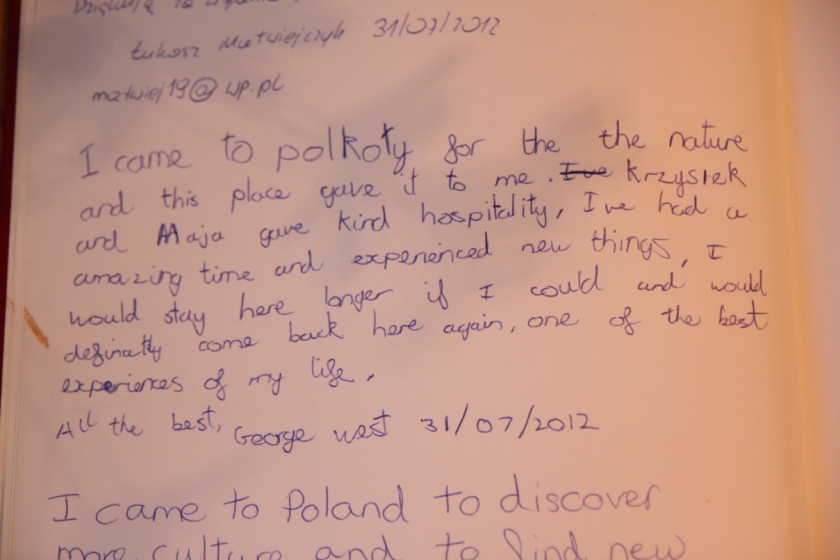 Dziękuję za
Łukosz Matwiejczyk 31/07/2012
matwiej19@wp.pl
I came to polkoty for the the nature
and this place gave it to me. I've Krzysiek
and Maja gave kind hospitality, I've had a
amazing time and experienced new things, I
would stay here longer if I could and would
definatly come back here again, one of the best
experiences of my life.
All the best, George west 31/07/2012
I came to Poland to discover
more culture and to find new